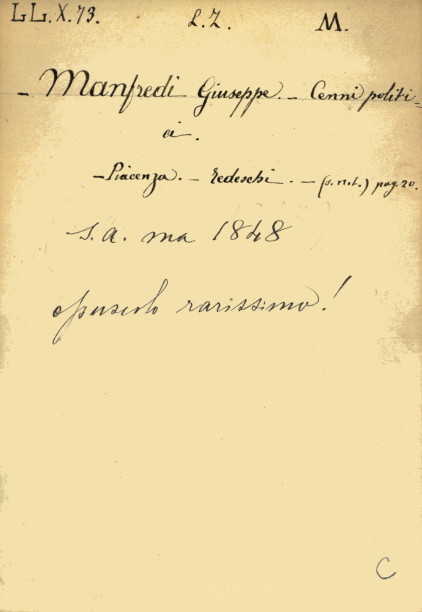 LL.X.73. L.Z. M.
- Manfredi Giuseppe. - Cenni politi-
ci.
- Piacenza. - Tedeschi. - (s.n.t.) pag. 20.
s.a. ma 1848
opuscolo rarissimo!
C